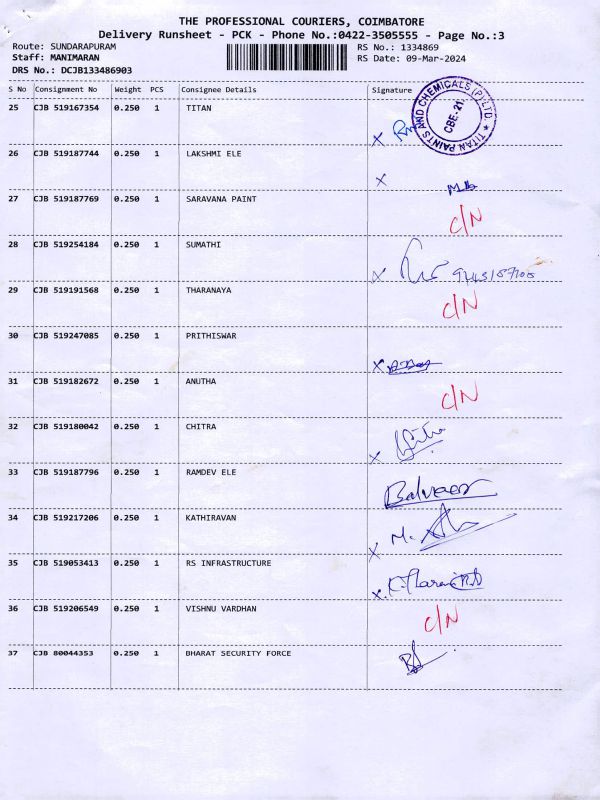 THE PROFESSIONAL COURIERS, COIMBATORE
Delivery Runsheet - PCK - Phone No.:0422-3505555 - Page No.:3
Route: SUNDARAPURAM RS No.: 1334869
Staff: MANIMARAN RS Date: 09-Mar-2024
DRS No.: DCJB133486903
S No Consignment No Weight PCS Consignee Details Signature
25 CJB 519167354 0.250 1 TITAN
TITAN PAINTS AND CHEMICALS (P) LTD.
CBE-21.
26 CJB 519187744 0.250 1 LAKSHMI ELE X
27 CJB 519187769 0.250 1 SARAVANA PAINT C/N
28 CJB 519254184 0.250 1 SUMATHI X
29 CJB 519191568 0.250 1 THARANAYA C/N
30 CJB 519247085 0.250 1 PRITHISWAR X
31 CJB 519182672 0.250 1 ANUTHA C/N
32 CJB 519180042 0.250 1 CHITRA X
33 CJB 519187796 0.250 1 RAMDEV ELE
34 CJB 519217206 0.250 1 KATHIRAVAN X M.
35 CJB 519053413 0.250 1 RS INFRASTRUCTURE X
36 CJB 519206549 0.250 1 VISHNU VARDHAN C/N
37 CJB 80044353 0.250 1 BHARAT SECURITY FORCE